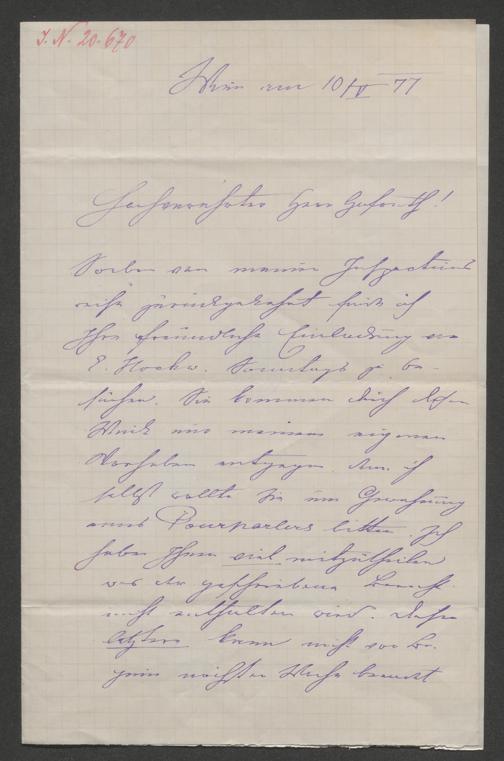 I. N. 20.670
Wien am 10/V 77
Hochverehrter Herr Hofrath!
Soeben von meiner Inspections
reise zurückgekehrt finde ich
Ihre freundliche Einladung
E. Hochw. Sonntags zu be-
suchen. Sie kommen durch diesen
Wink nur meinem eigenen
Vorhaben entgegen. denn ich
selbst wollte Sie um Gewährung
eines Pourparlers bitten. Ich
habe Ihnen viel mitzutheilen
was der geschriebene Bericht
nicht enthalten wird. Dieser
letztere kann nicht vor Be-
ginn nächster Woche beendet